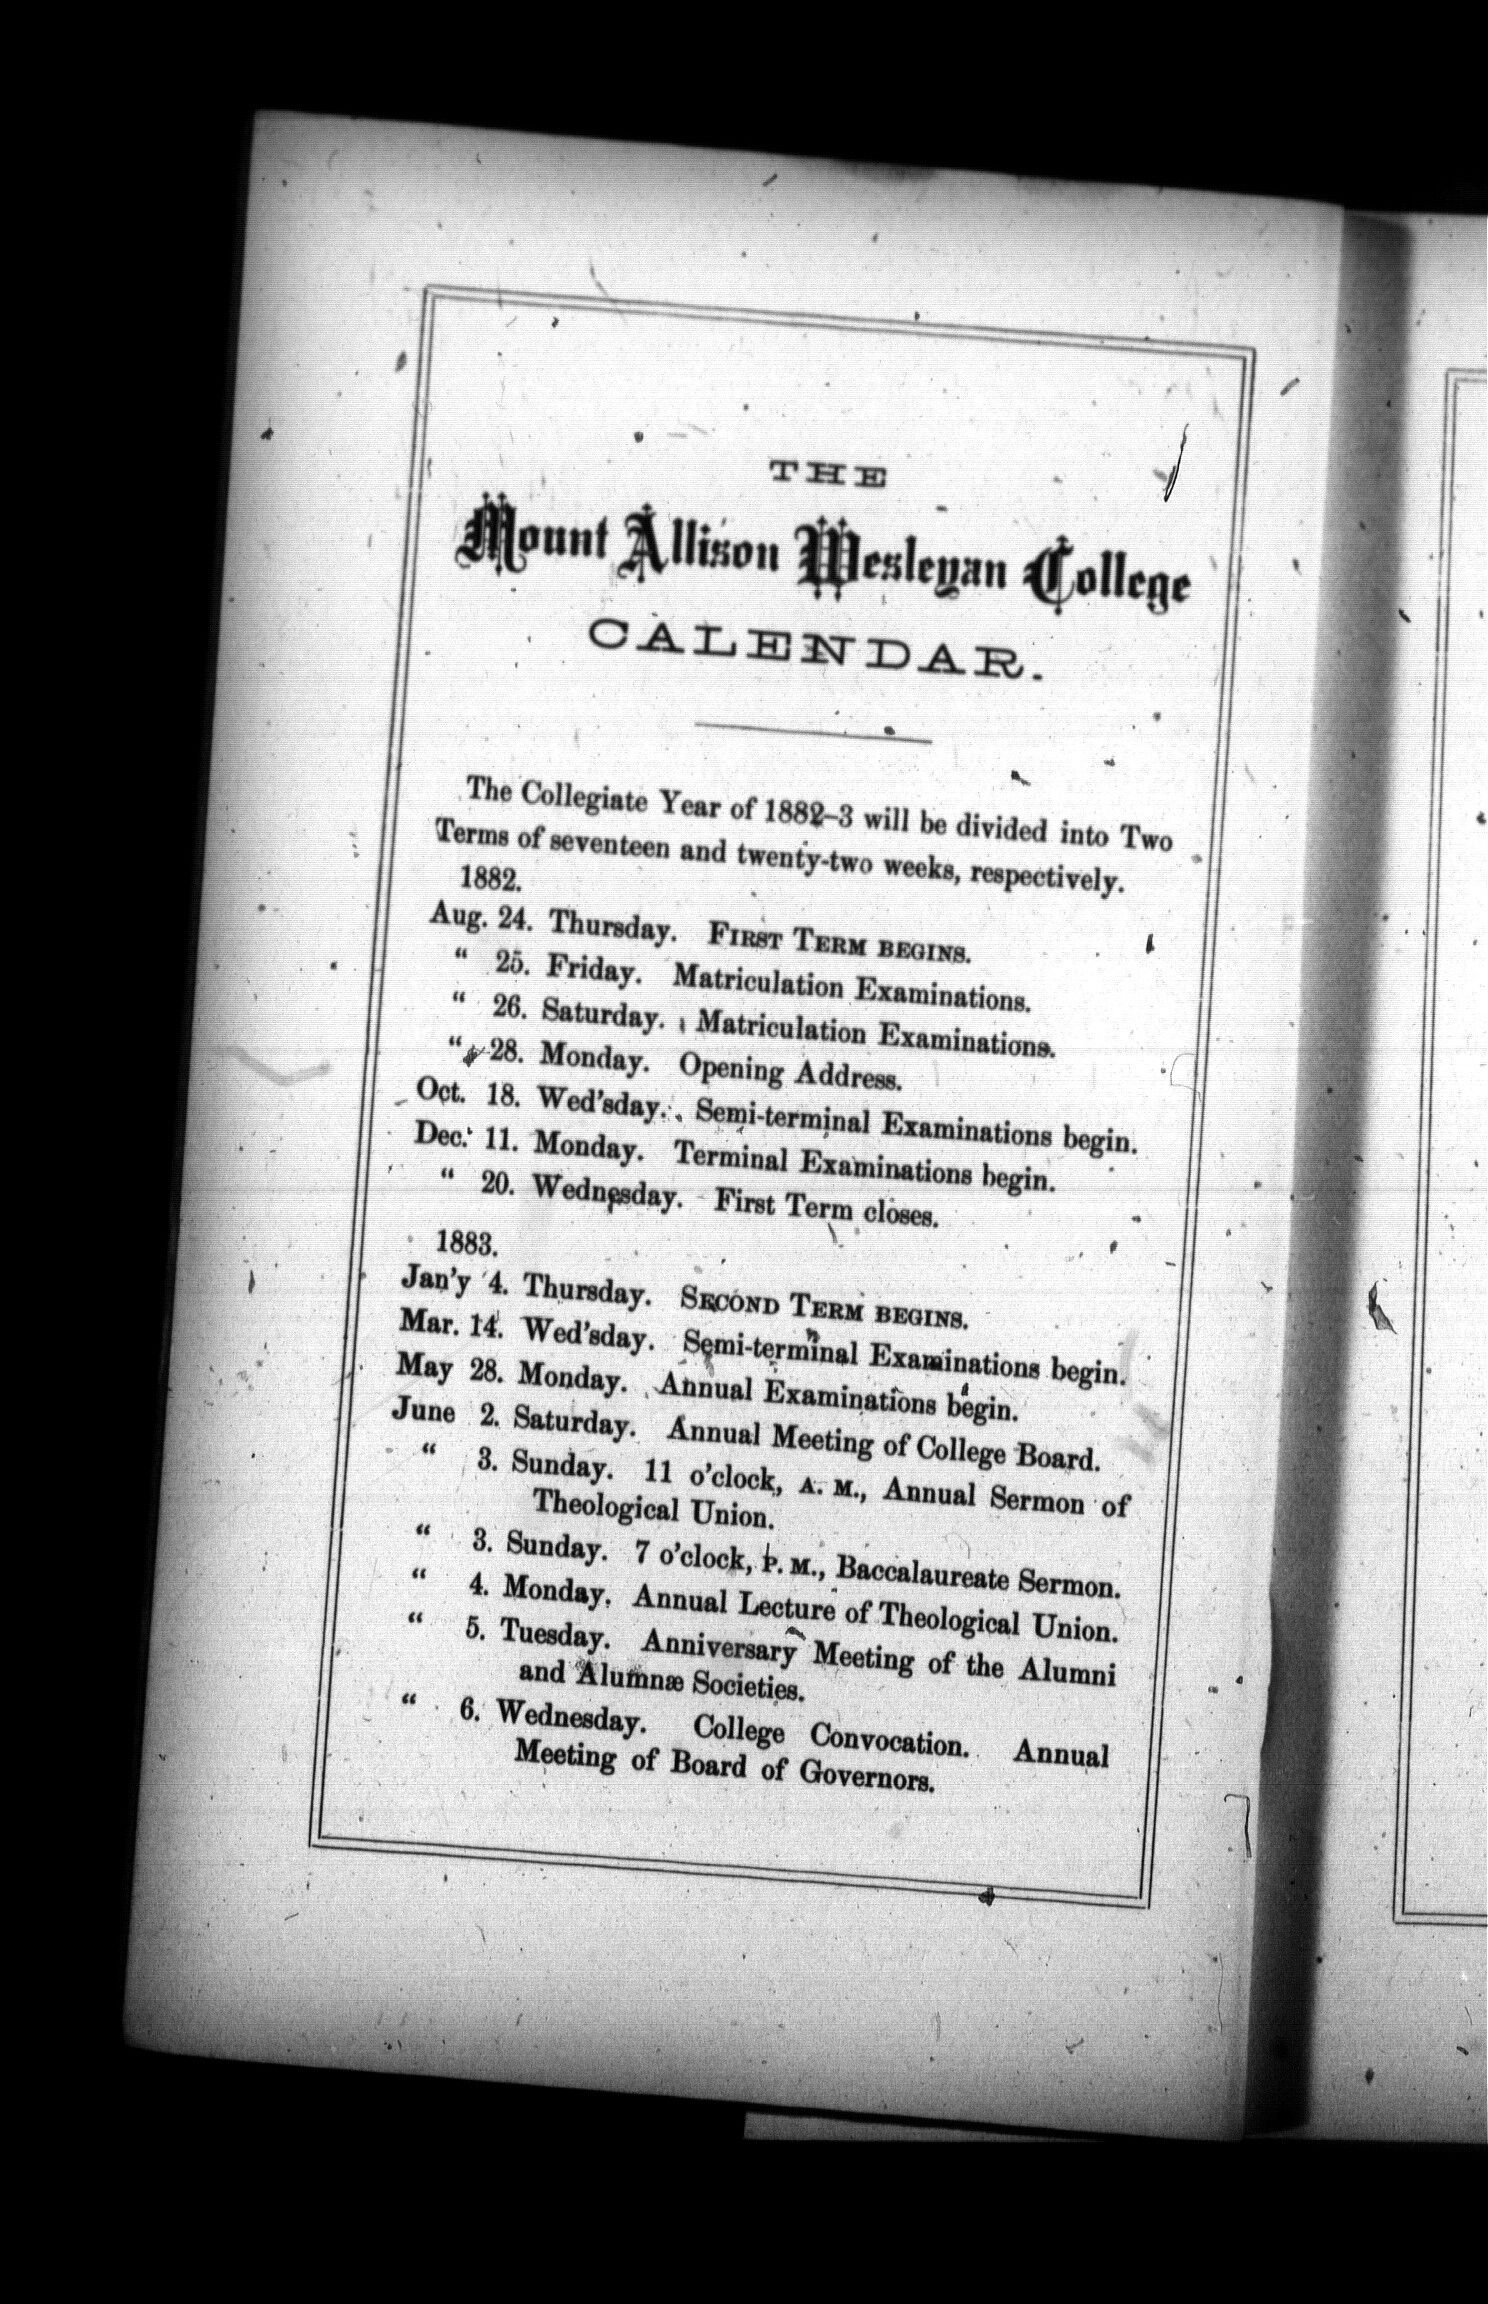 THE
Mount Allison Wesleyan College
CALENDAR.
The Collegiate Year of 1882–3 will be divided into Two
Terms of seventeen and twenty-two weeks, respectively.
1882.
Aug. 24. Thursday. FIRST TERM BEGINS.
" 25. Friday. Matriculation Examinations.
" 26. Saturday. Matriculation Examinations.
" 28. Monday. Opening Address.
Oct. 18. Wed'sday. Semi-terminal Examinations begin.
Dec. 11. Monday. Terminal Examinations begin.
" 20. Wednesday. First Term closes.
1883.
Jan'y 4. Thursday. SECOND TERM BEGINS.
Mar. 14. Wed'sday. Semi-terminal Examinations begin.
May 28. Monday. Annual Examinations begin.
June 2. Saturday. Annual Meeting of College Board.
" 3. Sunday. 11 o'clock, A. M., Annual Sermon of
Theological Union.
" 3. Sunday. 7 o'clock, P. M., Baccalaureate Sermon.
" 4. Monday. Annual Lecture of Theological Union.
" 5. Tuesday. Anniversary Meeting of the Alumni
and Alumnæ Societies.
" 6. Wednesday. College Convocation. Annual
Meeting of Board of Governors.